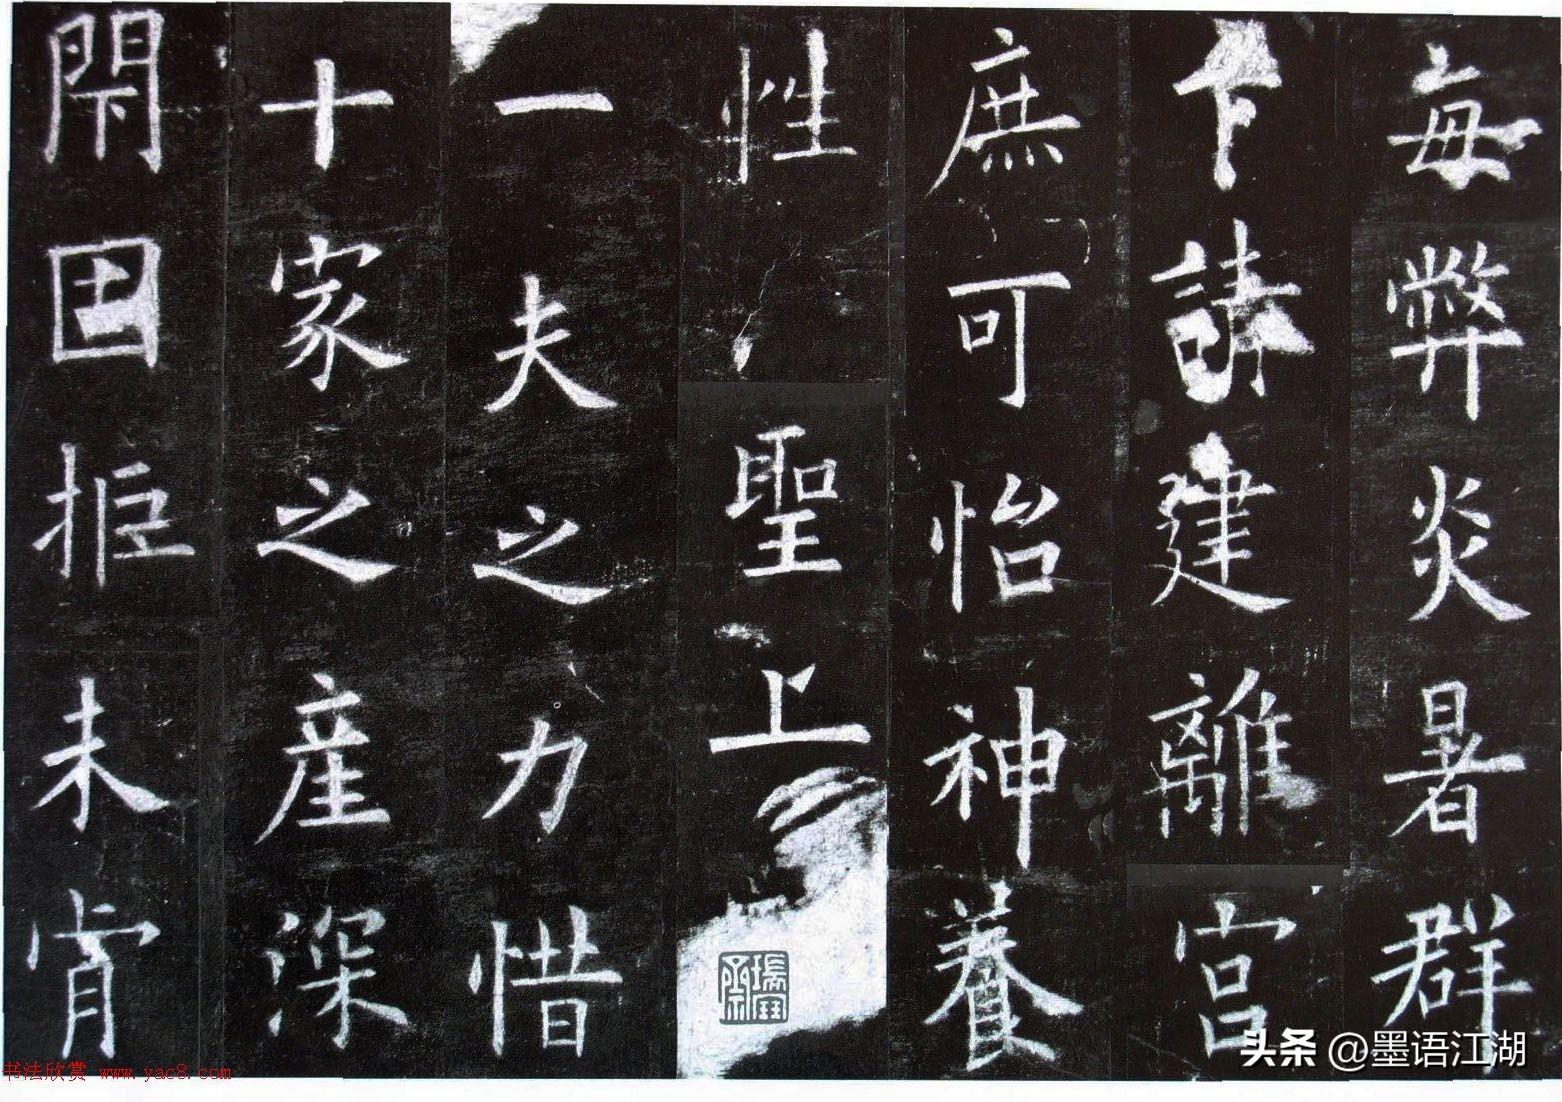 每弊炎暑群
下請建離宮
庶可怡神養
性聖上
一夫之力惜
十家之産深
閇固拒未肯
头条 @墨语江湖
书法欣赏 www.yac8.com